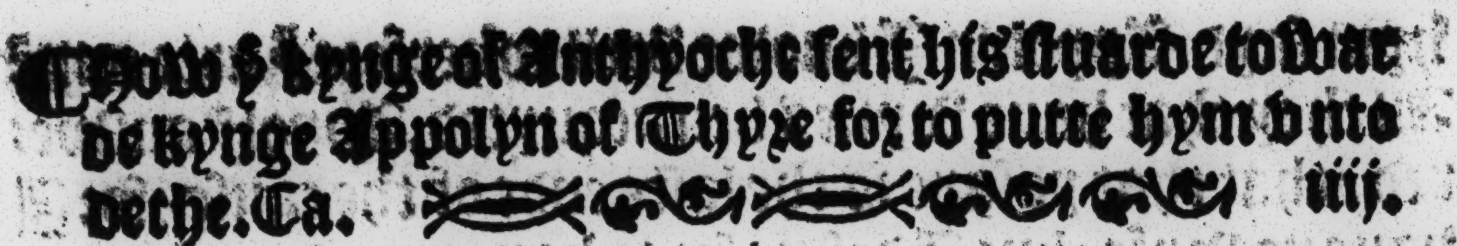 ¶ How yͤ kynge of Anthyoche ſent his ſtuarde towar
de kynge Appolyn of Thyꝛe foꝛ to putte hym vnto
dethe. Ca. iiij.